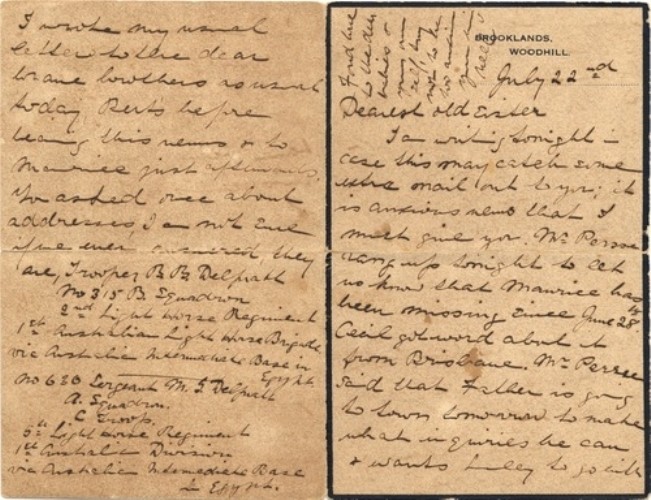 BROOKLANDS,
WOODHILL.
July 22nd
Dearest old sister
I am writing tonight in
case this may catch some
extra mail out to you; it
is anxious news that I
must give you. Mr Persse
rang up tonight to let
us know that Maurice has
been missing since June 28th
Cecil got word about it
from Brisbane. Mr Persse
said that Father is going
to town tomorrow to make
what inquiries he can
& wants to go with
I wrote my usual
letter to the dear
brave brothers as usual
today, Bert's before
hearing this news & to
Maurice just afterwards.
You asked once about
addresses, I am not sure
if we ever answered, they
are, Trooper B. B. Delpratt
No 315 B. Squadron
2nd Light Horse Regiment
1st Australian Light Horse Brigade
via Australian Intermediate Base in
Egypt.
No 680 Sergeant M. G. Delpratt
A. Squadron.
C Troop.
5th Light Horse Regiment
1st Austral. Division
via Australian Intermediate Base
in Egypt.